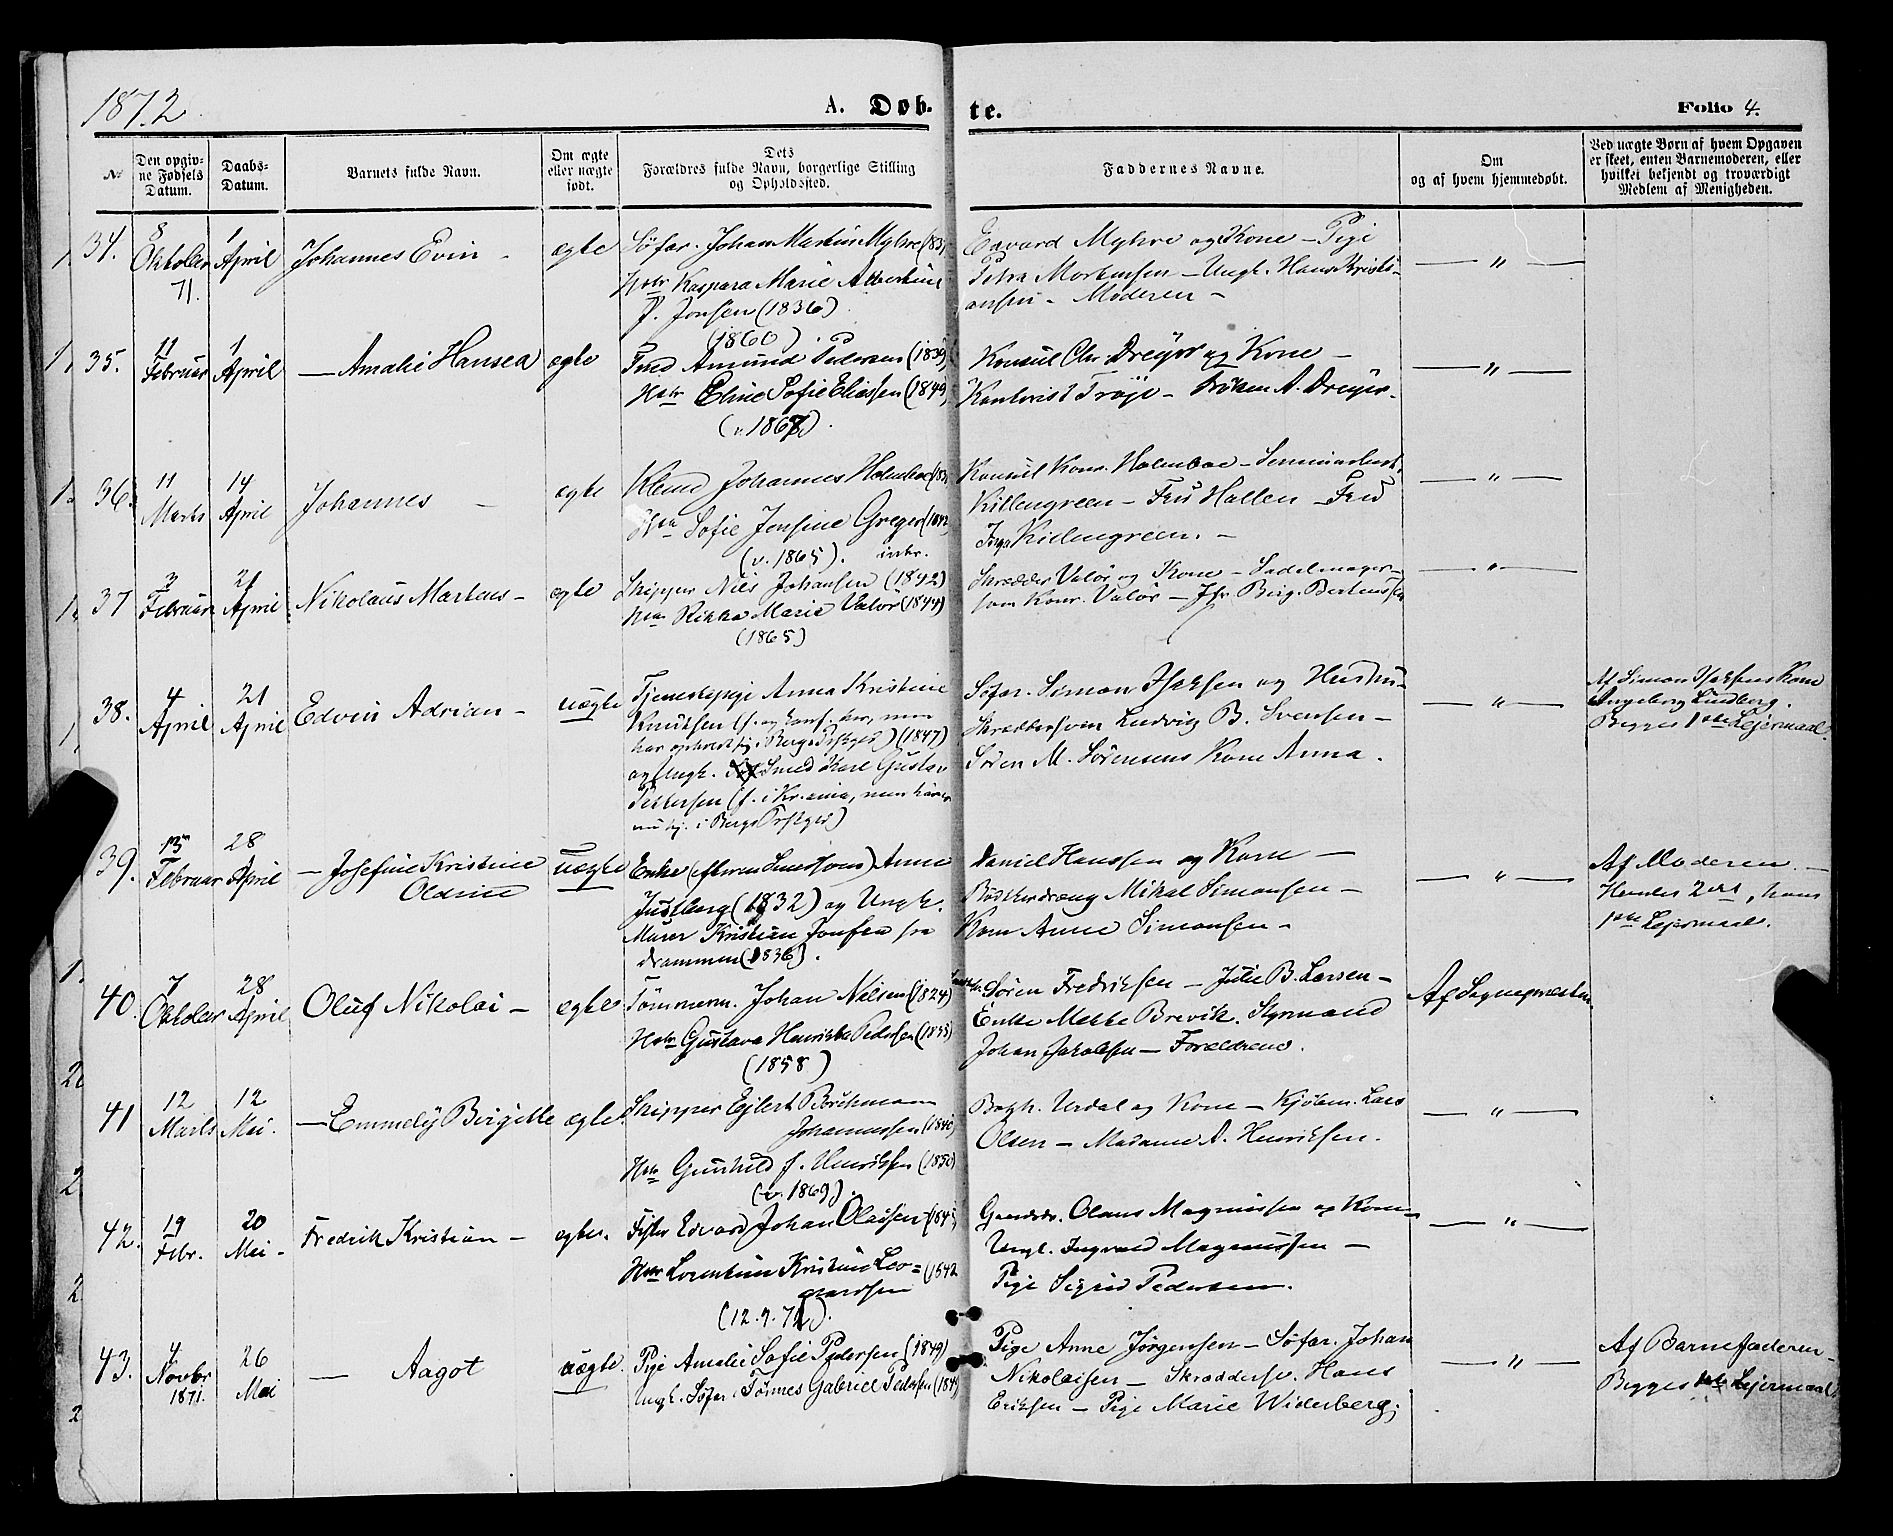 1872
A. Døb-
te.
Folio 4.
№
Den opgiv-
ne Fødsels
Datum.
Daabs-
Datum.
Barnets fulde Navn.
Om ægte
eller uægte
født.
Dets
Forældres fulde Navn, borgerlige Stilling
og Opholdssted.
Faddernes Navne.
Om
og af hvem hjemmedøbt.
Ved uægte Børn af hvem Opgaven
er skeet, enten Barnemoderen, eller
hvilket bekjendt og troværdigt
Medlem af Menigheden.
34.
8
Oktober
71.
1
April
Johannes Evin -
ægte
Søfar. Johan Martin Myhre (183
Hstr Kaspara Marie Albertine
J. Jonsen (1836)
(1860)
Edvard Myhre og Kone - Pige
Petra Mortensen - Ungk. Hans Kristi-
ansen - Moderen -
— " —
35.
11
Februar
1
April
— Amalie Hansea
ægte
Smed Amund Pedersen (1839)
Hstr Eline Sofie Eliassen (1849)
(v. 1868)
Konsul Chr. Dreyer og Kone -
Kontorist Trøje - Frøken A. Dreyer.
— " —
36.
11
Marts
14
April
Johannes -
ægte
Johannes Holmboe (183
Hstr Sofie Jensine Greger (1842
(v. 1865).
Konsul Konr. Holmboe - Seminariebest.
Killengreen - Fru Hallen - Fru
Inga Killengreen. -
— " —
37
3
Februar
21
April
Nikolaus Marteus -
ægte
Skipper Nils Johansen (1842)
Hstr Rikka Marie Valør (1844)
(1865)
Skrædder Valør og Kone - Sadelmager-
svən Konr. Valør - Jfr. Berg. Berteussen
— " —
38.
4
April
21
April
Edvin Adrian -
uægte
Tjenestepige Anna Kristine
Knutsen (f. og konf. her, men
har opholdt sig i Bergs Prstgjd) (1847)
og Ungk. Smed Karl Gustav
Pettersen (f. i Kr.ania, men har
nu hj. i Bergs Prstgjd)
Søfar. Simon Isaksen og Hustru -
Skræddersvən Ludvig B. Svensen -
Søren M. Sørensens Kone Anna.
— " —
Af Simon Isaksens Kone
Ingeborg Lundberg.
Begges 1ste Lejermaal.
39.
15
Februar
28
April
— Josefine Kristine
Oldine
uægte
Enke Anne
Justberg (1832) og Ungk.
Murer Kristian Jonsen fra
Drammen (1836).
Daniel Hanssen og Kone -
Bødkerdræng Mikal Simonsen -
Kone Anne Simonsen -
— " —
Af Moderen. -
Hendes 2det, hans
1ste Lejermaal.
40.
7
Oktober
28
April
Oluf Nikolai -
ægte
Tømmerm. Johan Nilsen (1824)
Hstr Gustava Henrikke Pedersen (1835)
(1858)
Søren Fredriksen - Julie B. Larsen -
Enke Mette Brevik. Styrmand
Johan Jakobsen - Forældrene.
Af Sognepræsten.
41
12
Marts
12
Mai.
— Emmely Birgitte
ægte.
Skipper Ejlert Bruchmann
Johannessen (1846
Hstr Gunhild f. Henriksen (1850)
(v. 1869).
Bogh. Urdal og Kone - Kjøbm. Lars
Olsen - Madame A. Henriksen.
— " —
42.
19
Febr.
20
Mai -
Fredrik Kristian -
ægte.
Fisker Edvard Johan Olaisen (184
Hstr Lorentine Kristine Leo=
nardsen (1842
(12.9.71).
Gaardbr. Olaus Magnussen og Kone -
Ungk. Ingvard Magnussen -
Pige Sigrid Pedersen.
— " —
43.
4
Novbr
1871.
26
Mai
— Aagot
uægte.
Pige Amalie Sofie Pedersen (1849)
Ungk. Søfar. Tønnes Gabriel Pedersen (184
Pige Anne Jørgensen - Søfar. Johan
Nikolaisen - Skræddersv. Hans
Eriksen - Pige Marie Widerberg.
— " —
Af Barnefaderen -
Begges 1ste Lejermaal